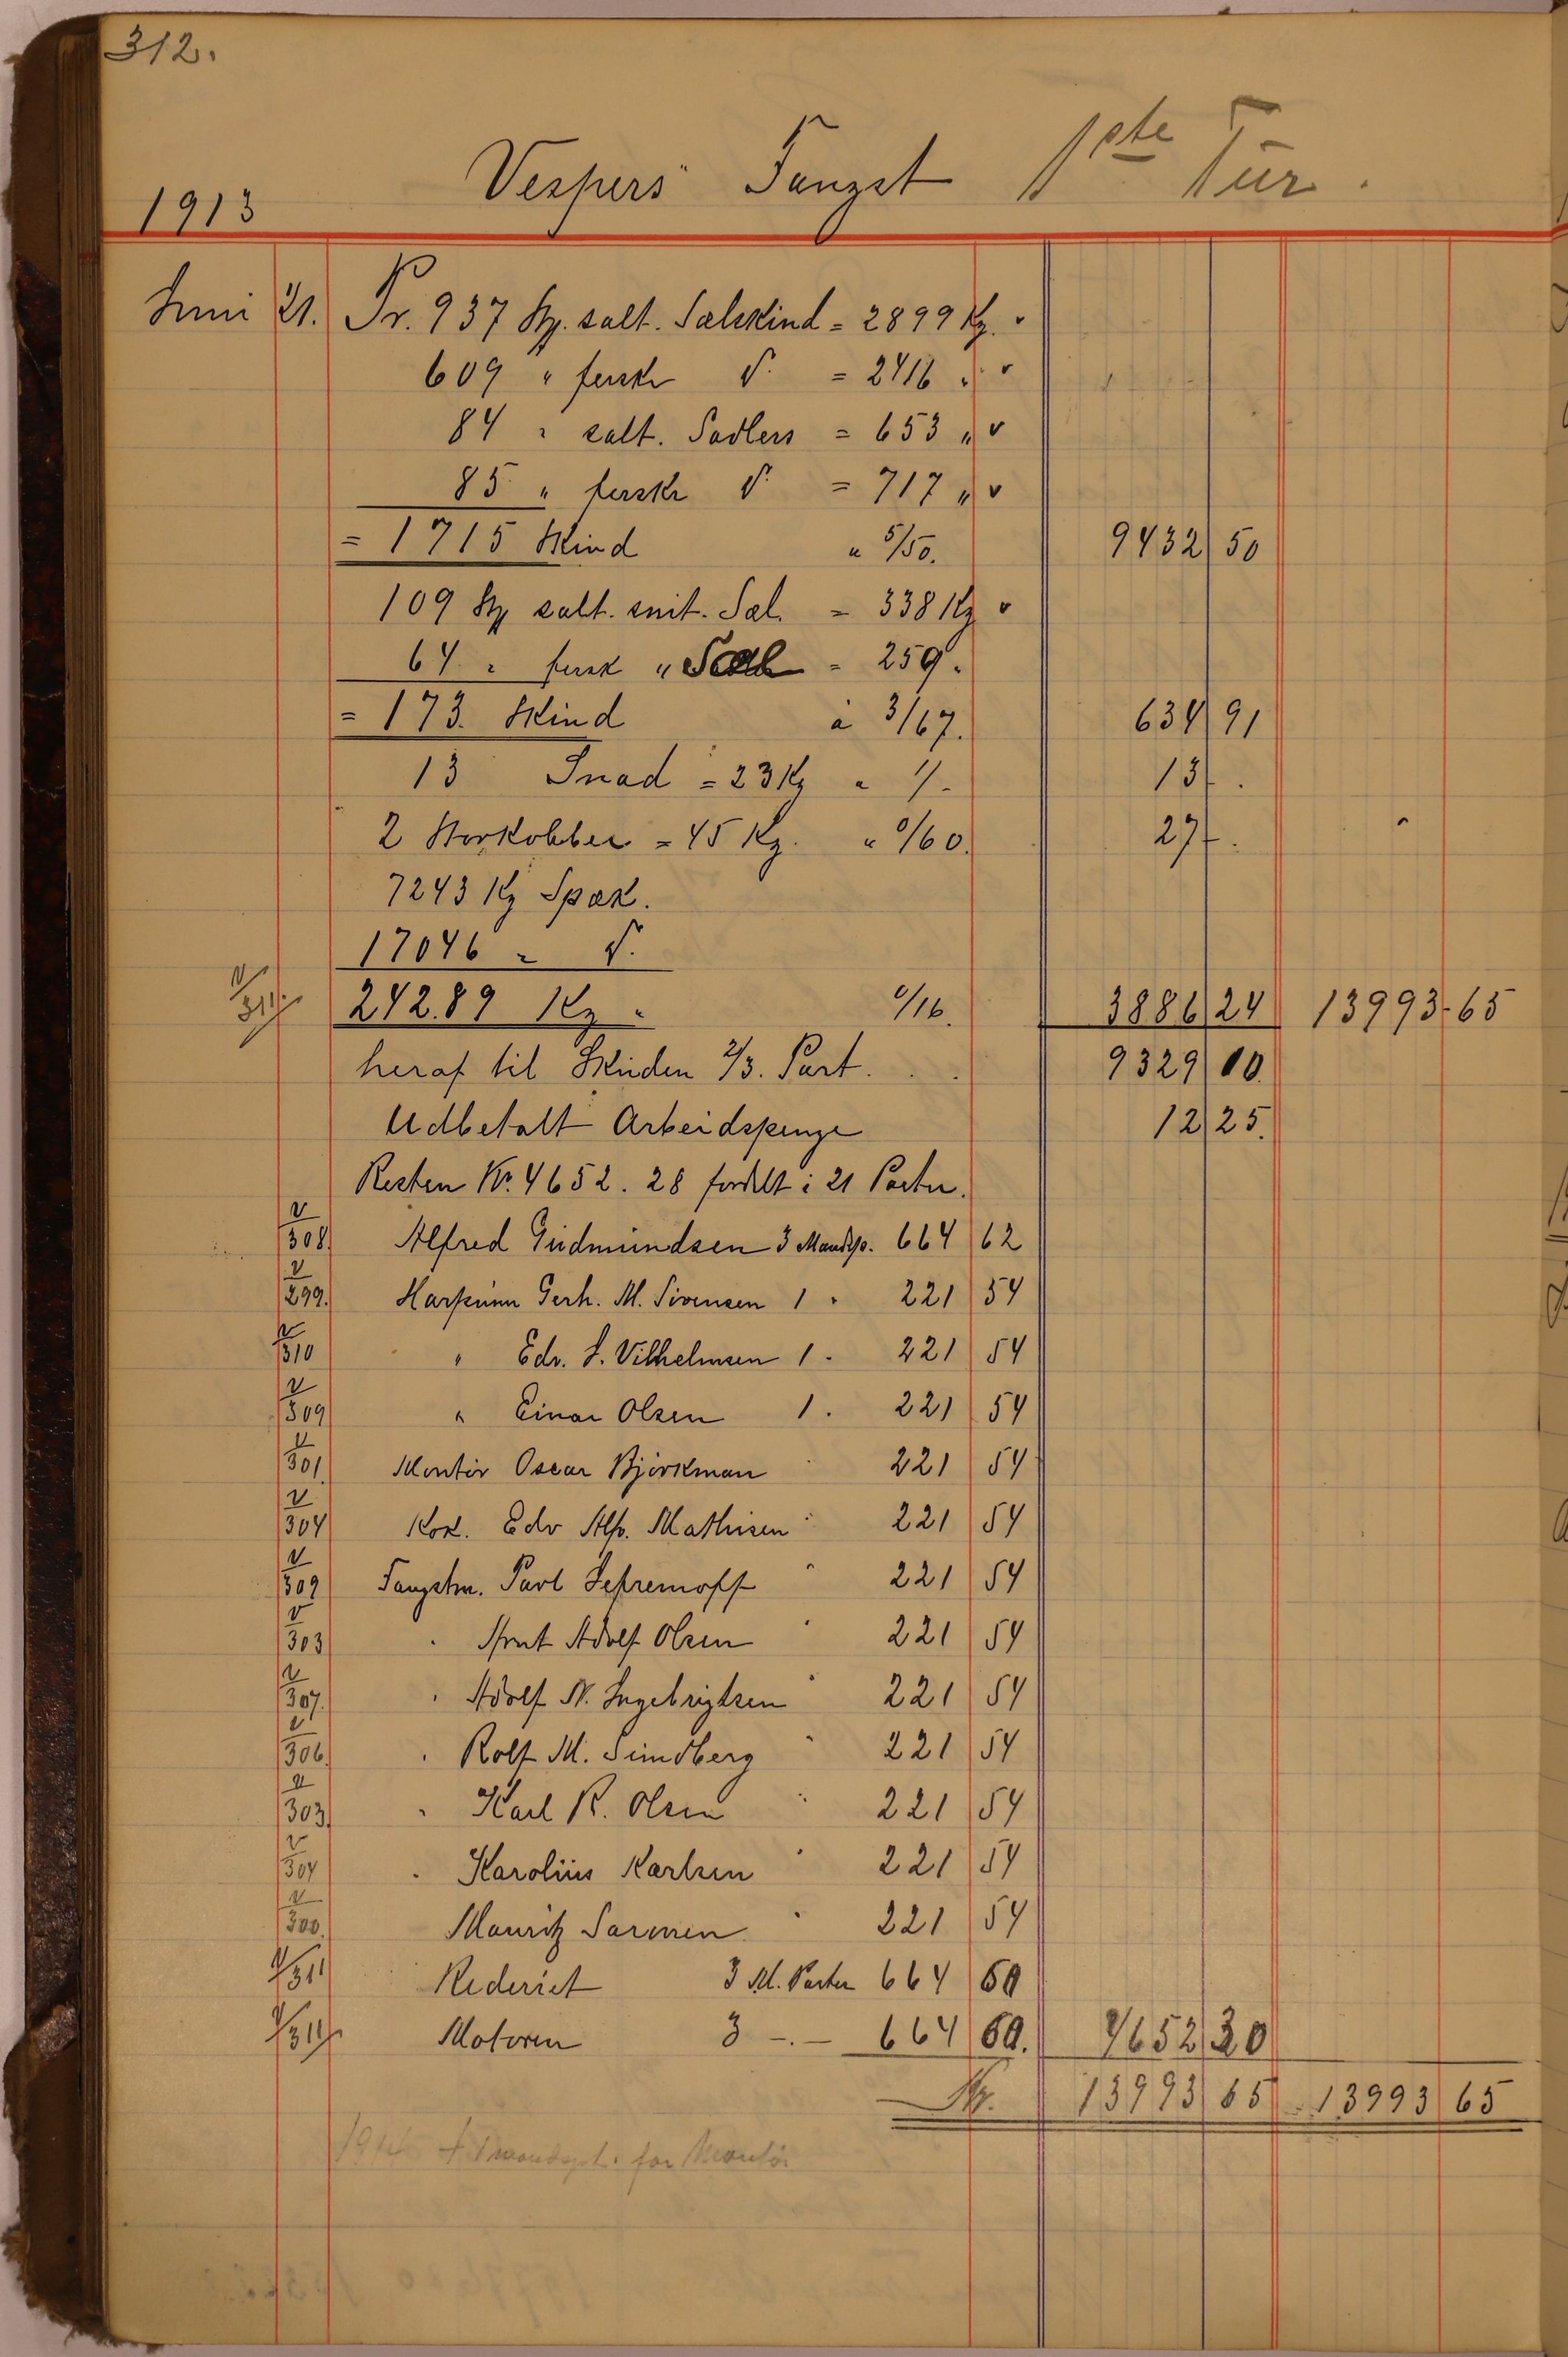 312.
1913 Vespers Fangst 1ste Tur.
Juni 21. Pr. 937 Stk. salt. Sælskind = 2899 Kg. v
609 " ferske d. = 2416 " v
84 " salt. Sadlers = 653 " v
85 " ferske d. = 717 " v
= 1715 Skind a 5/50. 9432 50
109 Stk salt. snit. Sæl. = 338 Kg v
64 " fersk " Sæl = 259 "
= 173. Skind à 3/67. 634 91
13 Snad = 23 Kg a 1/- 13 -.
2 Storkobber = 45 Kg. a 0/60. 27 -.
7243 Kg Spæk.
17046 " d.
v/311 24289 Kg " 0/16. 3886 24 13993.65
heraf til Skuden 2/3. Part. . . 9329 10.
Udbetalt Arbeidspenge 12 25.
Resten Kr. 4652.28 fordelt i 21 Parter.
v/308 Alfred Gudmundsen 3 Mandsp. 664 62
v/299. Harpunn Gerh. M. Sivensen 1 " 221 54
v/310 " Edv. L. Vilhelmsen 1 " 221 54
v/309 " Einar Olsen 1 " 221 54
v/301 Montör Oscar Björkman " 221 54
v/304 Kok. Edv Alf. Mathisen " 221 54
v/309 Fangstm. Pavl Jefremoff " 221 54
v/303 " Arnt Adolf Olsen " 221 54
v/307. " Adolf N. Ingebrigtsen " 221 54
v/306. " Rolf M. Simdberg " 221 54
v/303 " Karl R. Olsen " 221 54
v/304 " Karolius Karlsen " 221 54
v/300. Mauritz " 221 54
v/311 Rederiet 3 M. Parter 664 60
v/311 Motoren 3 -.- 664 60. 4652 30
Kr. 13993 65 13993 65
1914 for Montör